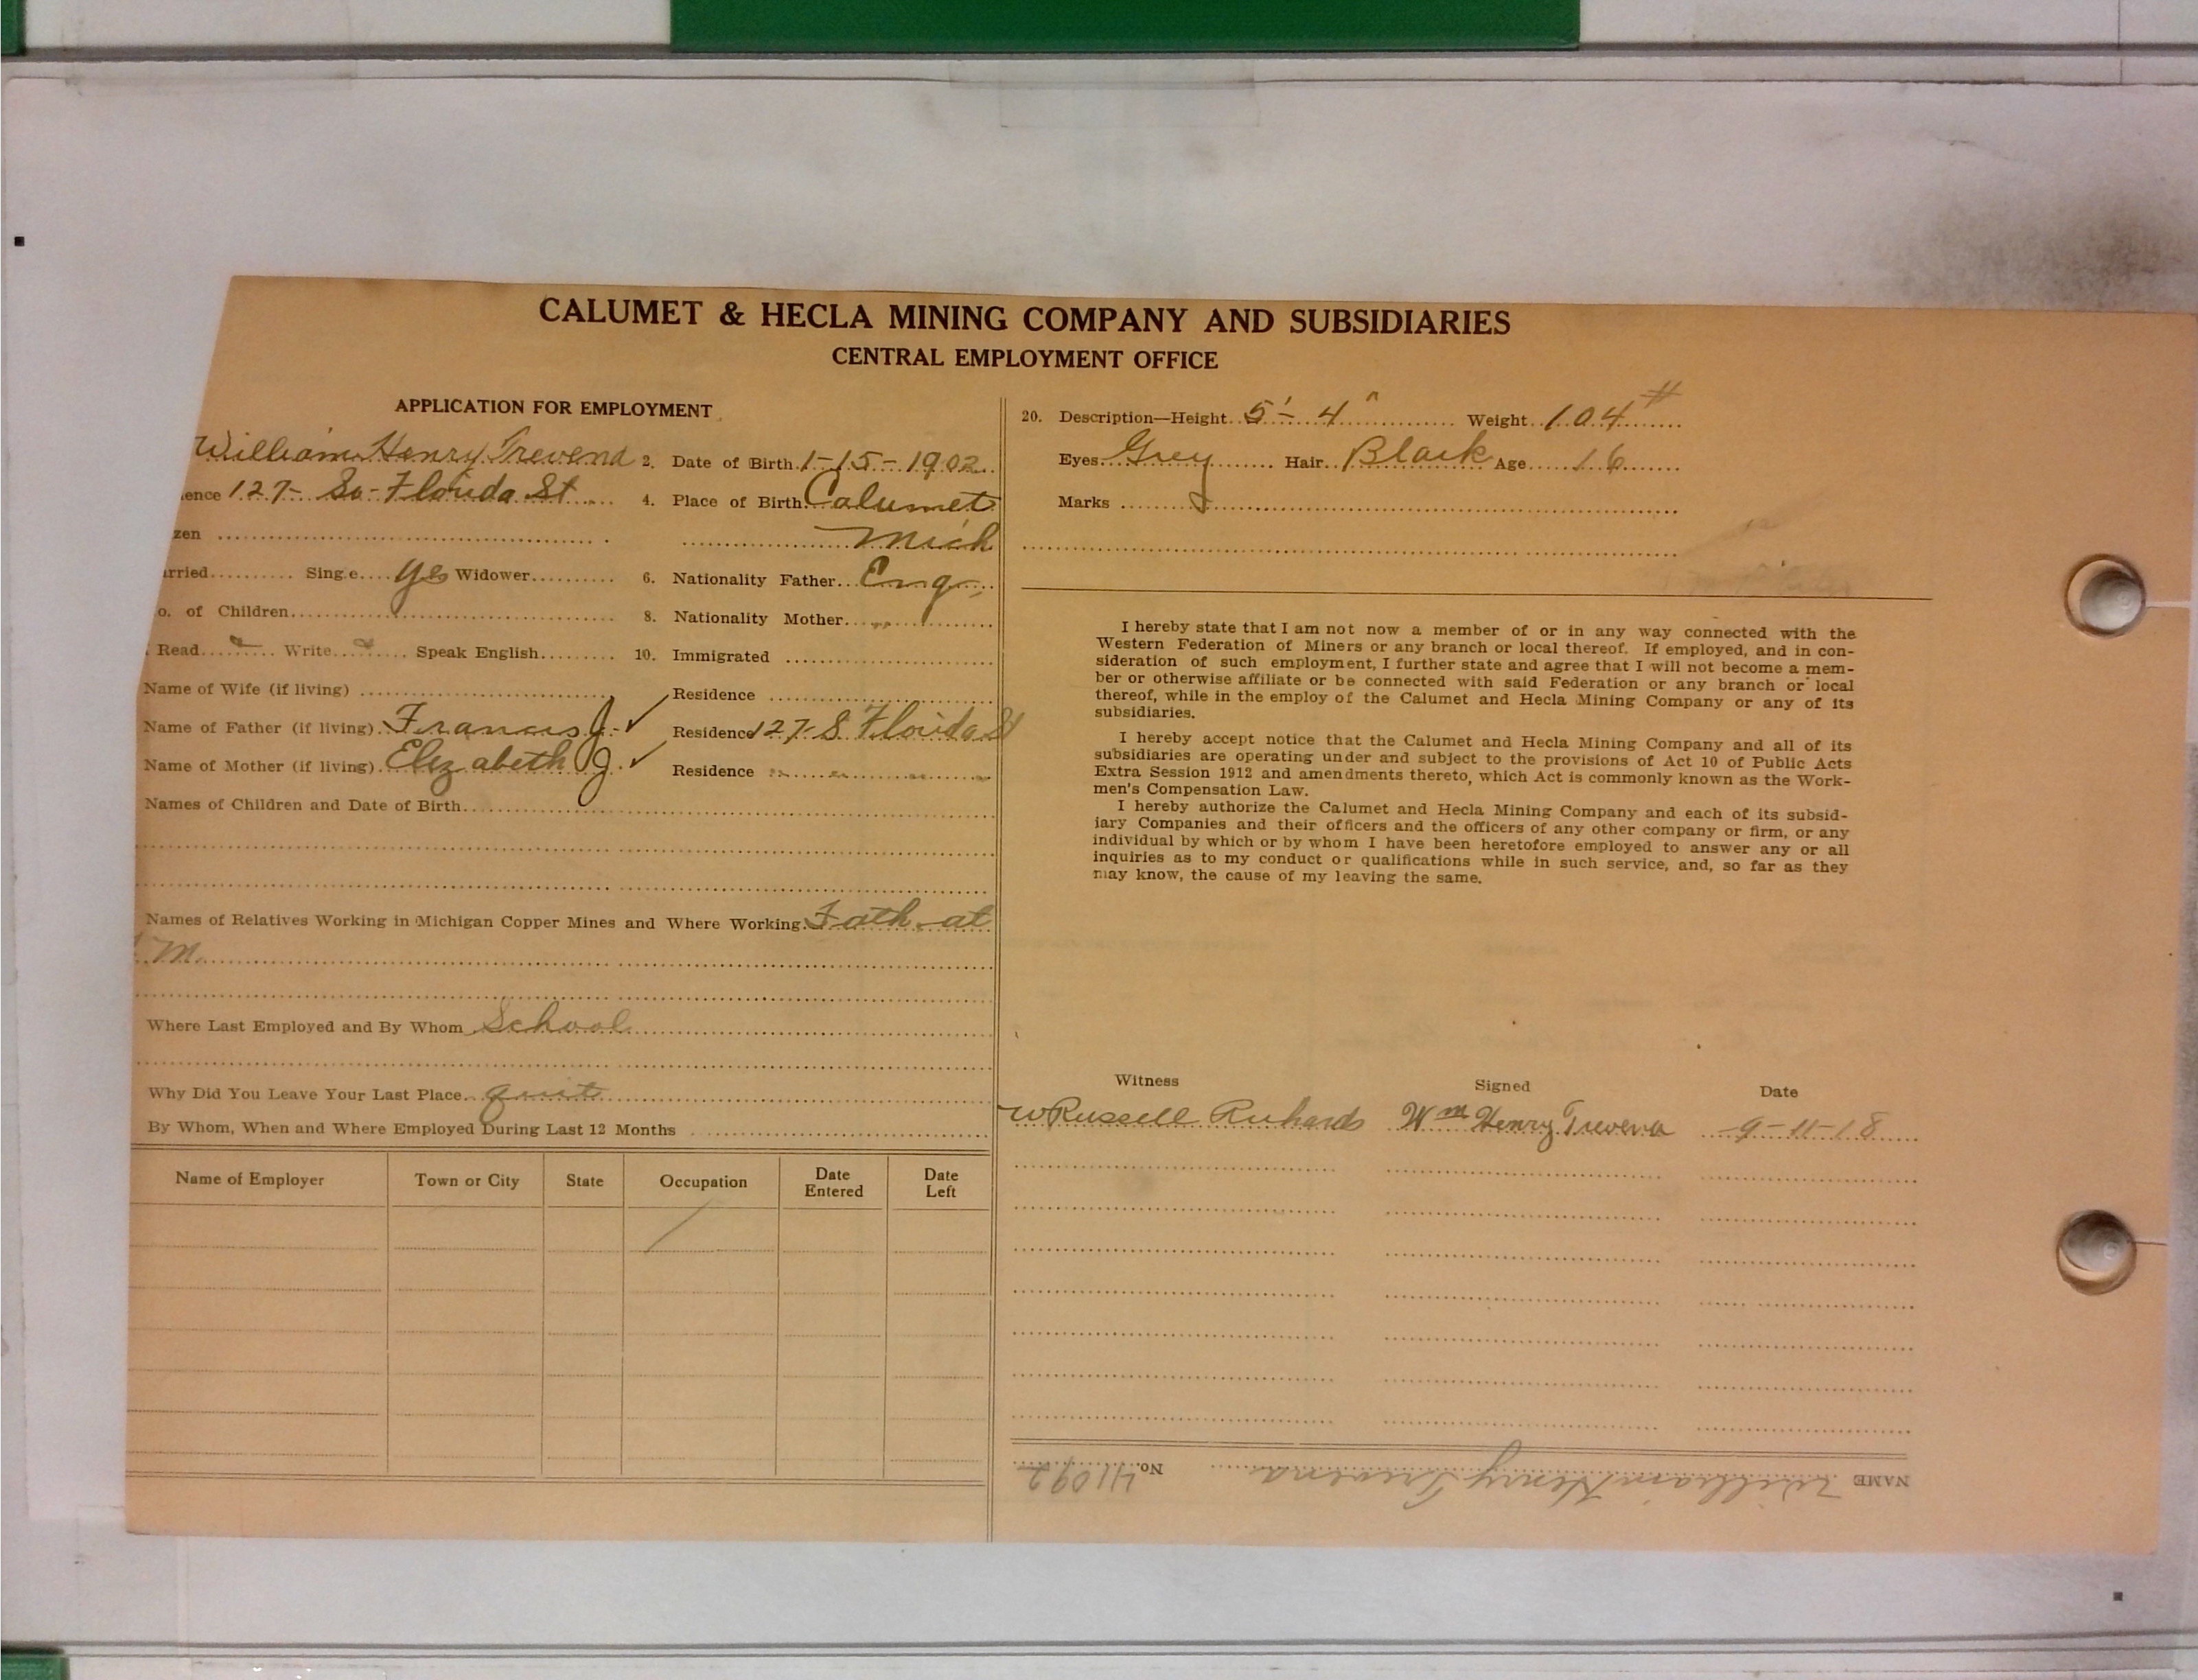 CALUMET & HECLA MINING COMPANY AND SUBSIDIARIES
CENTRAL EMPLOYMENT OFFICE
APPLICATION FOR EMPLOYMENT
William Henry Trevena 2. Date of Birth 1-15-1902
ence 127- So-Florida St 4. Place of Birth Calumet
zen Mich
rried Single yes Widower 6. Nationality Father Eng
o. of Children 8. Nationality Mother " "
Read Write Speak English 10. Immigrated
Name of Wife (if living) Residence
Name of Father (if living) Francis J. ✓ Residence 127-S Florida St
Name of Mother (if living) Elizabeth J. ✓ Residence " " " "
Names of Children and Date of Birth
Names of Relatives Working in Michigan Copper Mines and Where Working Fath- at
M.
Where Last Employed and By Whom School
Why Did You Leave Your Last Place quit
By Whom, When and Where Employed During Last 12 Months
Name of Employer Town or City State Occupation Date Entered Date Left
20. Description—Height 5'- 4" Weight 104#
Eyes Grey Hair Black Age 16
Marks
I hereby state that I am not now a member of or in any way connected with the
Western Federation of Miners or any branch or local thereof. If employed, and in con-
sideration of such employment, I further state and agree that I will not become a mem-
ber or otherwise affiliate or be connected with said Federation or any branch or local
thereof, while in the employ of the Calumet and Hecla Mining Company or any of its
subsidiaries.
I hereby accept notice that the Calumet and Hecla Mining Company and all of its
subsidiaries are operating under and subject to the provisions of Act 10 of Public Acts
Extra Session 1912 and amendments thereto, which Act is commonly known as the Work-
men's Compensation Law.
I hereby authorize the Calumet and Hecla Mining Company and each of its subsid-
iary Companies and their officers and the officers of any other company or firm, or any
individual by which or by whom I have been heretofore employed to answer any or all
inquiries as to my conduct or qualifications while in such service, and, so far as they
may know, the cause of my leaving the same.
Witness Signed Date
W Russell Richards Wm Henry Trevena 9-11-18
NAME William Henry Trevena No. 41092